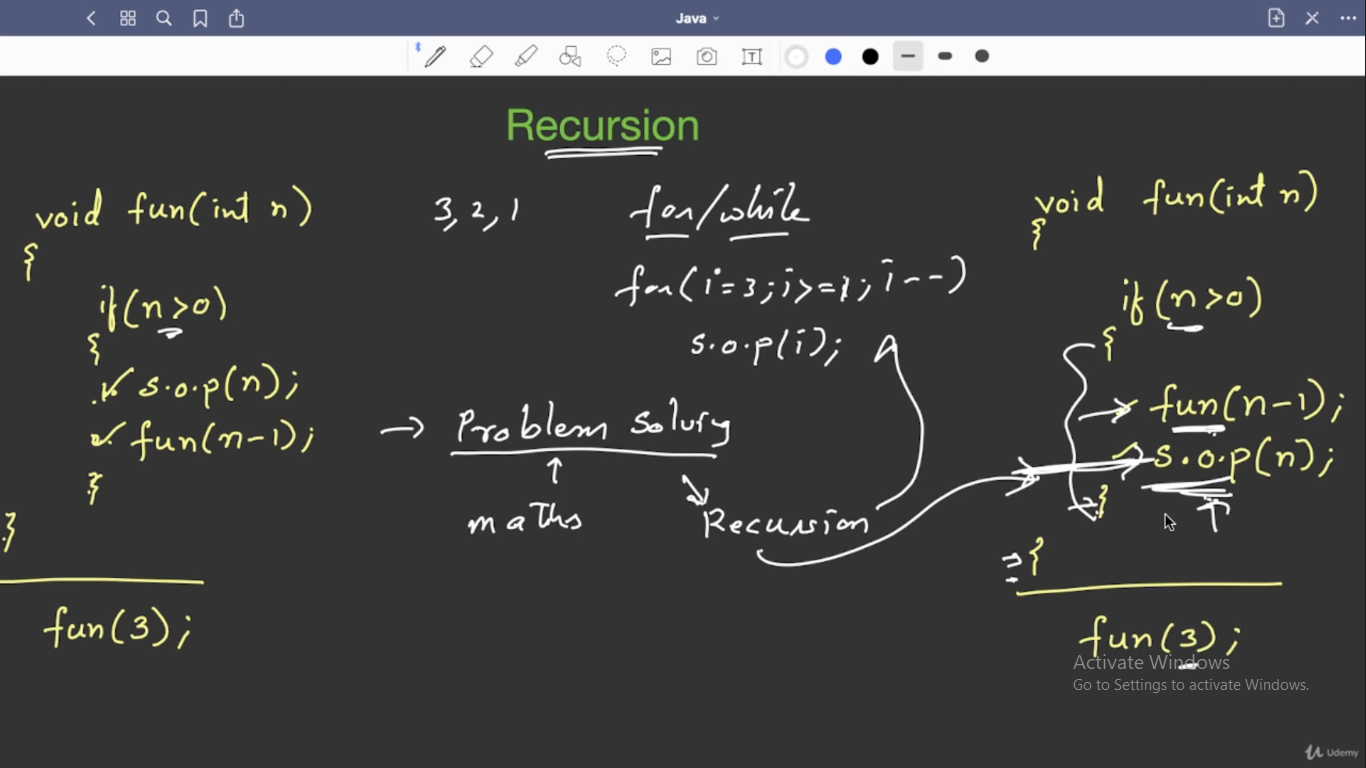 Java
Recursion
void fun(int n)
{
if(n>0)
{
s.o.p(n);
fun(n-1);
}
}
fun(3);
3, 2, 1
for/while
for(i=3;i>=1;i--)
s.o.p(i);
→ Problem Solving
↑
maths
Recursion
void fun(int n)
{
if(n>0)
{
fun(n-1);
s.o.p(n);
}
}
fun(3);
Activate Windows
Go to Settings to activate Windows.
Udemy